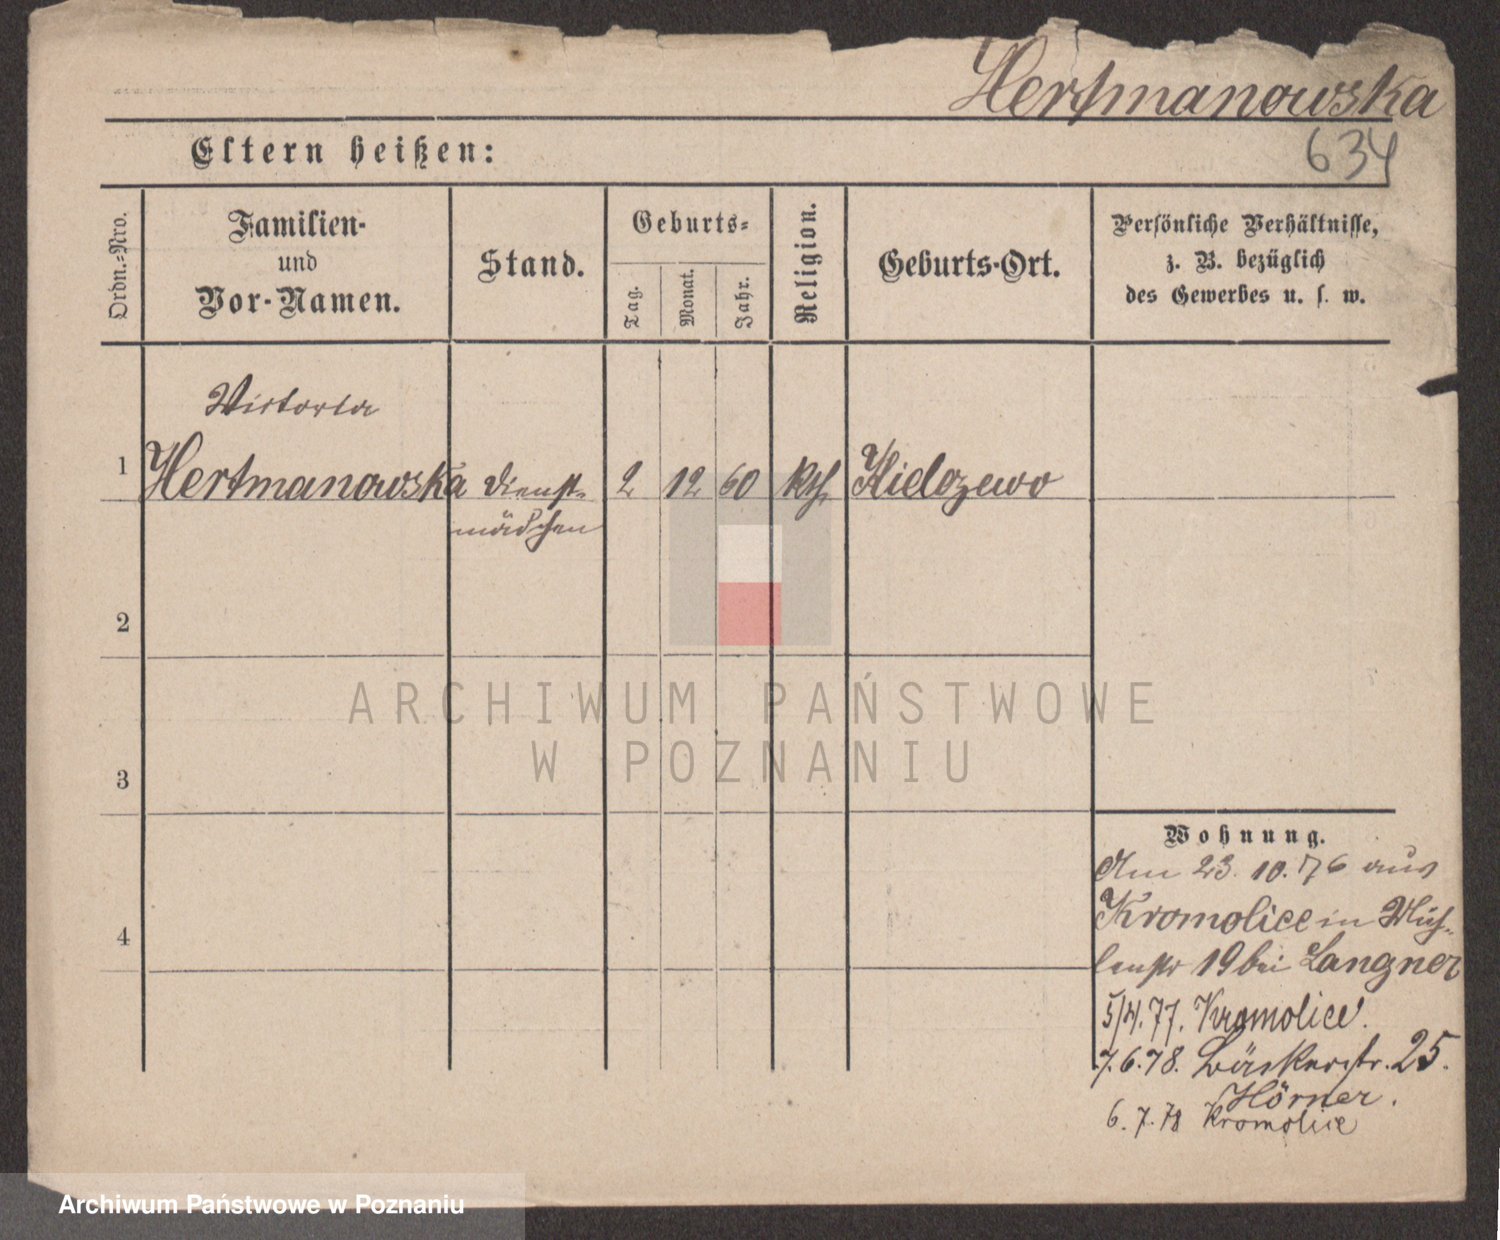 Hertmanowska
634
Eltern heißen:
Ordn.-Nro.
Familien-
und
Vor-Namen.
Stand.
Geburts-
Tag.
Monat.
Jahr.
Religion.
Geburts-Ort.
Persönliche Verhältnisse,
z. B. bezüglich
des Gewerbes u. s. w.
Victoria
1 Hertmanowska Dienst- 2 12 60 kth.
mädchen
2
3
4
ARCHIWUM PAŃSTWOWE
W POZNANIU
Wohnung.
Am 23. 10. 76 aus
Kromolice in Müh-
lenstr 19 bei Langner
5/4. 77. Kromolice.
7. 6. 78. Bäckerstr. 25.
Hörner.
6. 7. 78 Kromolice
Archiwum Państwowe w Poznaniu